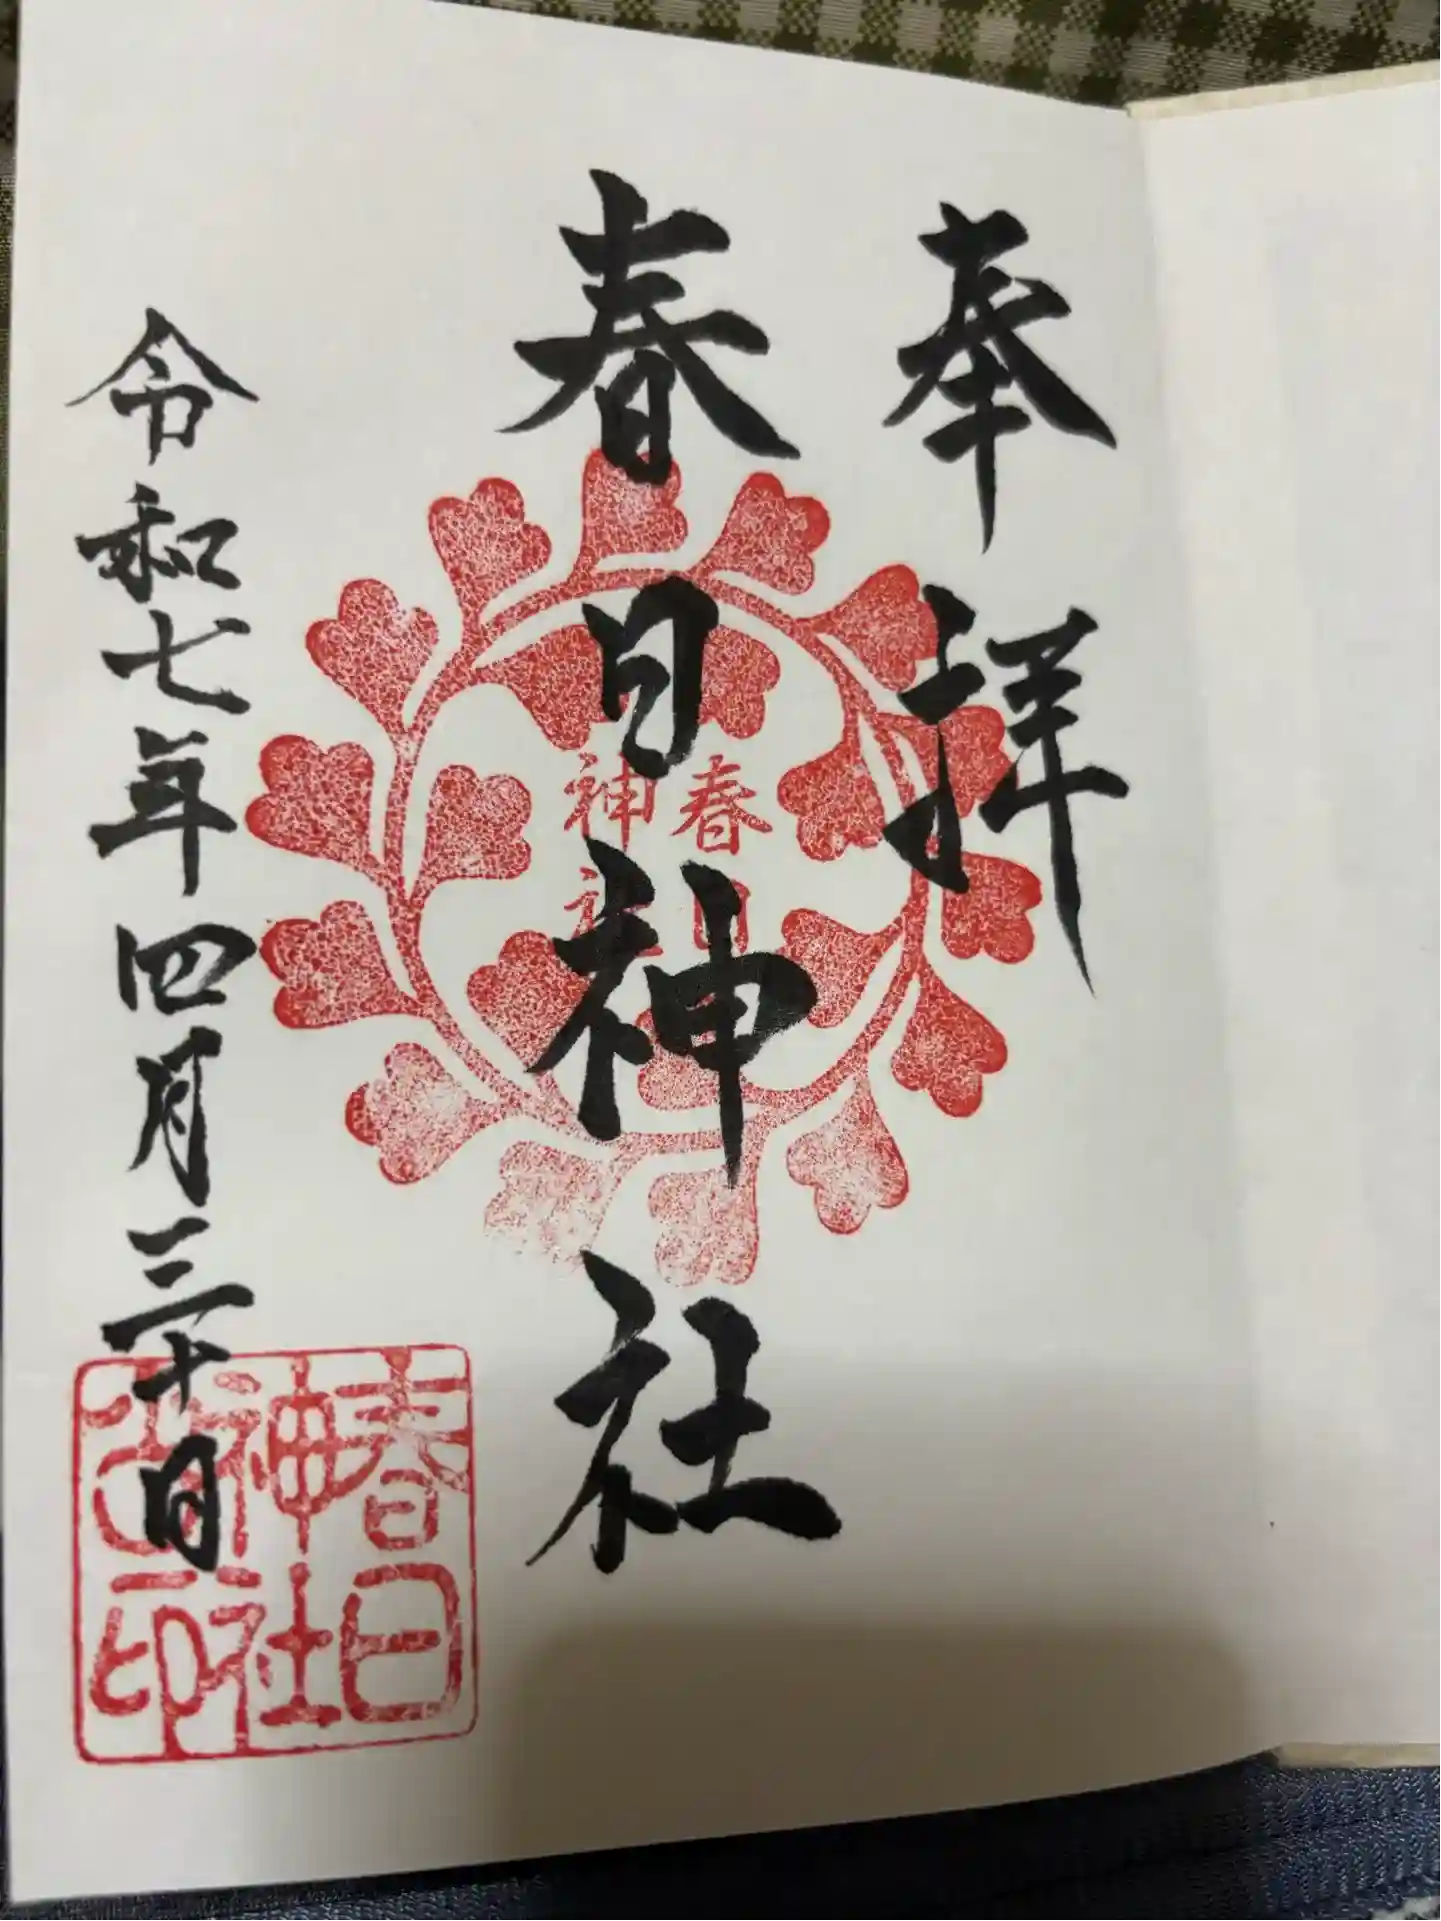 奉拝
春日神社
春日
神社
令和七年四月三十日
春日
神社
印